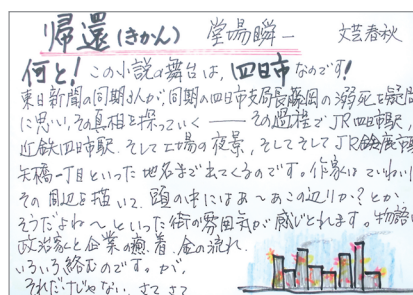 帰還(きかん) 堂場瞬一 文芸春秋
何と!この小説の舞台は、四日市なのです!
東日新聞の同期3人が、同期の四日市支局長藤岡の溺死を疑問
に思い、その真相を探っていく――その過程でJR四日市駅、
近鉄四日市駅、そして工場の夜景、そしてそしてJR
矢橋一丁目といった地名まで出てくるのです。作家は
その周辺を描いて、頭の中にはあ〜あこの辺りか?とか、
そうだよね〜といった街の雰囲気が感じとれます。物語は
政治家と企業の癒着、金の流れ、
いろいろ絡むのです。が、
それだけじゃない、さてさて